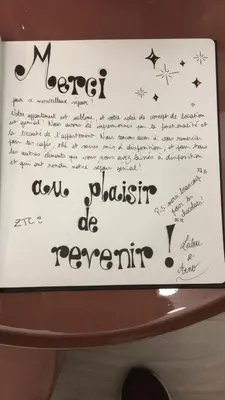 Merci
pour ce merveilleux séjour!
Notre appartement est sublime et votre idée de concept de location
est génial! Nous avons été impressionné par la fonctionnalité et
la beauté de l'appartement. Nous tenons aussi à vous remercier
pour les cafés, thé et autres mis à disposition, et pour tous
les autres éléments que vous nous avez laissés à disposition
et qui ont rendu notre séjour génial!
au plaisir
de
revenir!
P.S: merci beaucoup
pour les
chocolats!
&
Arno